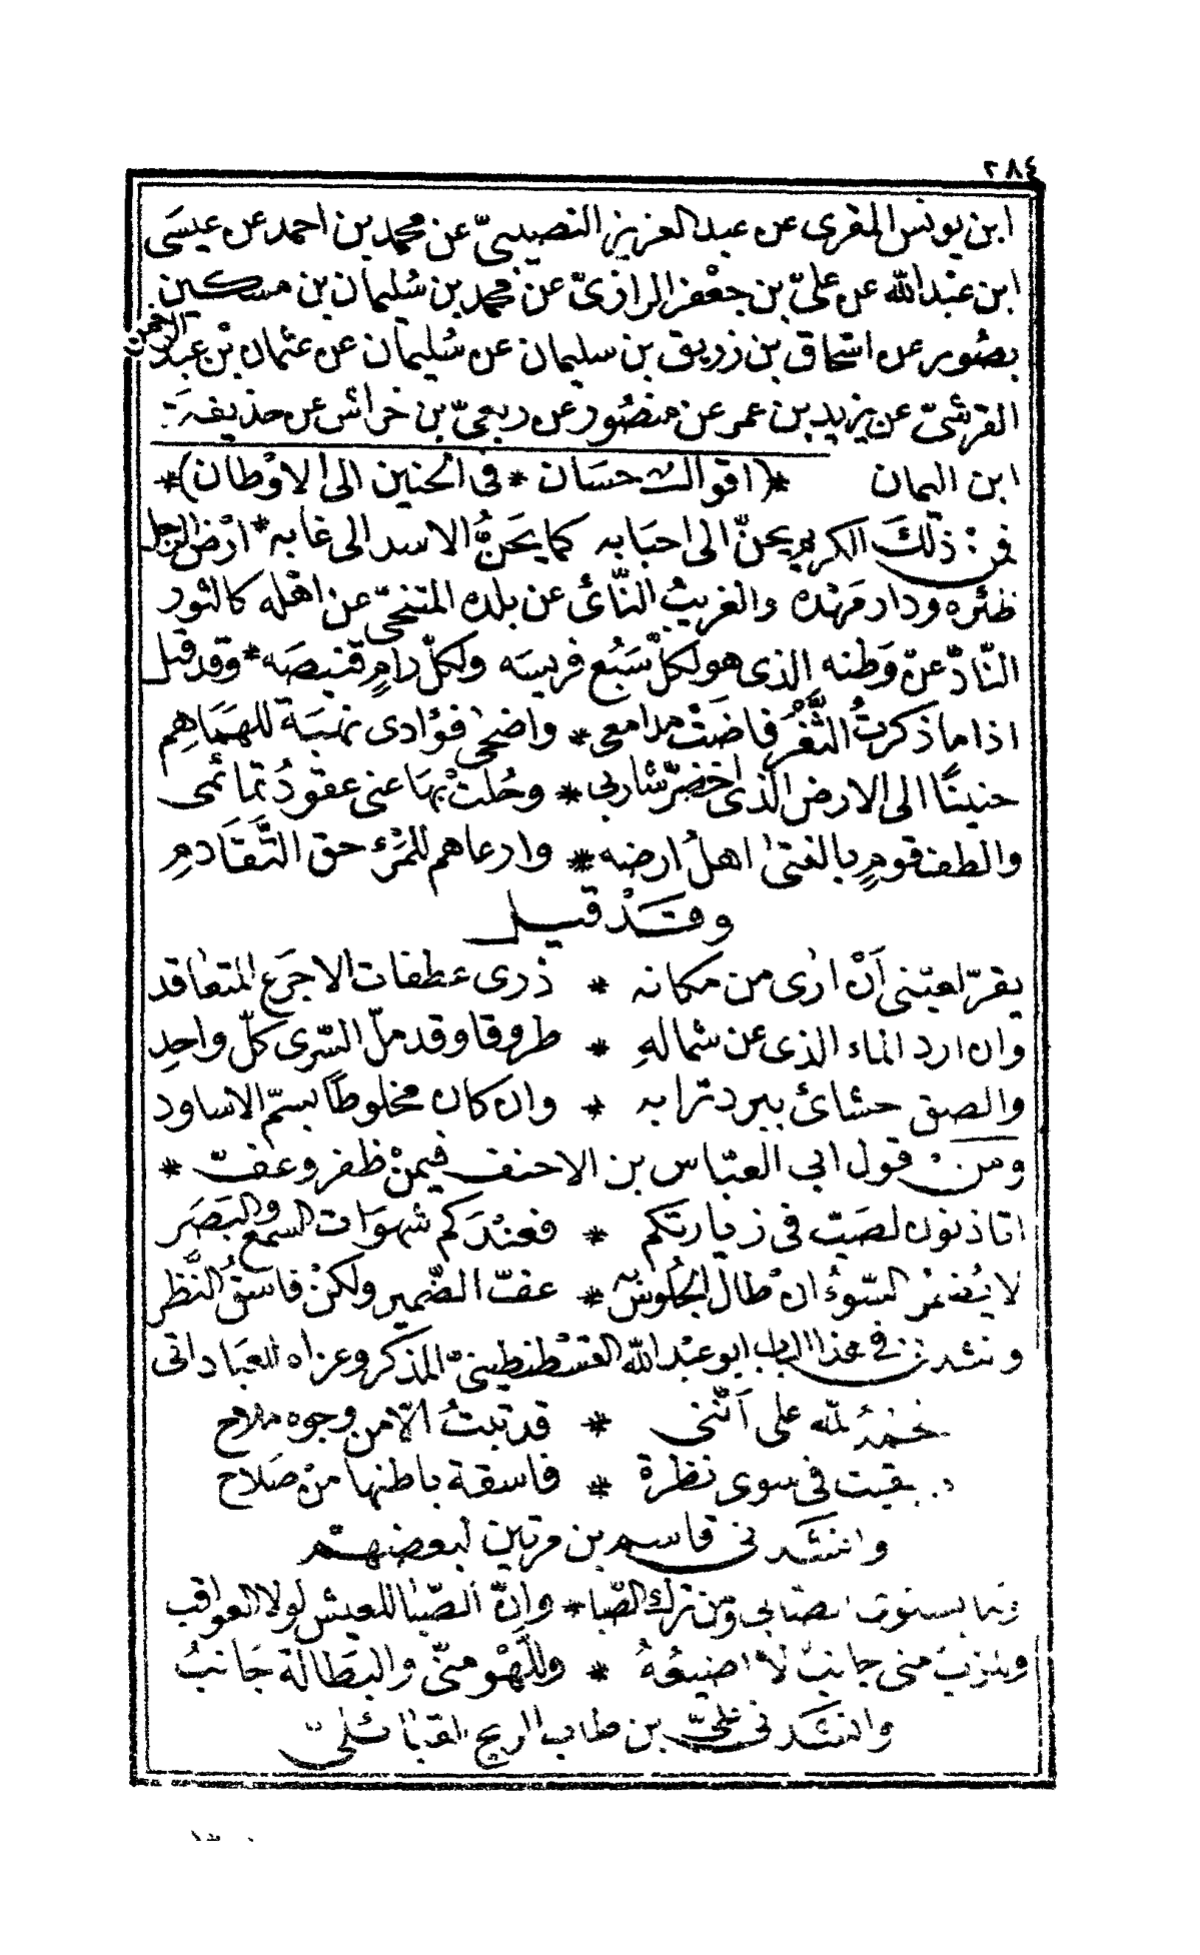 ٢٨٤
ابن يونس المقرى عن عبد العزيز النصيبىّ عن محمد بن احمد عن عيسَى
ابن عبد الله عن علىّ بن جعْفر الرازىّ عن محمد بن سُليمان بن مسكين
بصُور عن اسحاق بن زريق بن سليمان عن سُليمان عن عثمان بْن عبد الرحمن
القرشىّ عن يزيد بن عمر عن منصُور عن ربعىّ بن خراش عن حذيفة
ابن اليمان *(اقوالٌ حسَان * فى الحنين الى الاوْطان)*
فمن ذلكَ الكريم يحنّ الى احبَابه كما يحَنُّ الاسد الى غابه * ارْض الرجل
ظئره ودار مَهْده والغريبُ النّائى عن بلده المتنحّى عن اهْله كالثور
النّادّ عنْ وَطنه الذى هو لكلّ سَبُع فريسَه ولكلّ رامٍ قنيصَه * وقد قيل
اذا ما ذكرتُ الثَّغْرَ فاضَتْ مدامعى * واضحٰى فؤادى نهبَة للهمَاهِمِ
حنينًا الى الارض الذى اخضرّ شاربى * وحُلتْ بهَا عنى عقودُ تمائمى
والطف قومٍ بالفتىٰ اهلُ ارضه * وارعاهم للمَرْء حق التَّقَادمِ
وقَدْ قيل
يقرّ لعيْنى اَنْ ارٰى من مكانه * ذرى عطفات الاجرَع المتقاقد
وان ارد الماء الذى عن شمالهِ * طروقا وقد ملّ السّرى كلّ واحِد
والصق حشائ ببرد ترابه * وان كان مخلوطًا بسمّ الاساود
ومن قول ابى العبّاس بن الاحنف فيمنْ ظفر وعفّ *
اتاذنون لصَبّ فى زيارتكم * فعنْدَكم شهوَات السمع والبَصَر
لا يُضمرُ السّوءُ انْ طال الجُلوس به * عفّ الضّمير ولكنْ فاسقُ النَّظر
ونشدنى فى هذا الباب ابو عبْد الله القسْطنطينىّ المذكر وعزاه للعبَادانى
لله على اَنّنى * قد تبتُ الّا من وجوه ملاح
بقيت فى سوى نظرة * فاسقة باطنها منْ صَلاح
وانشَدنى قاسم بن مرتين لبعضهمْ
ترك الصّبا * وانّ الصّبَا للعيش لولا العواقب
منى جانبٌ لا اضيعُهُ * وللَّهْو منّى والبطالة جَانبُ
وانشَدنى علىّ بن طالب الربح القبائلىّ